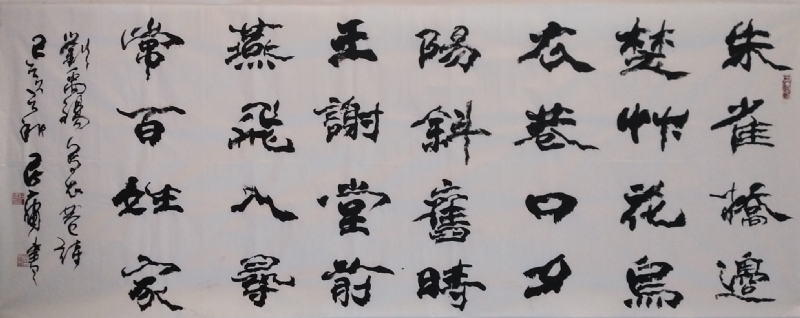 朱雀橋邊
埜艸花烏
衣巷口夕
陽斜舊時
王謝堂前
燕飛入尋
常百姓家
劉禹錫烏衣巷詩
己亥之秋書